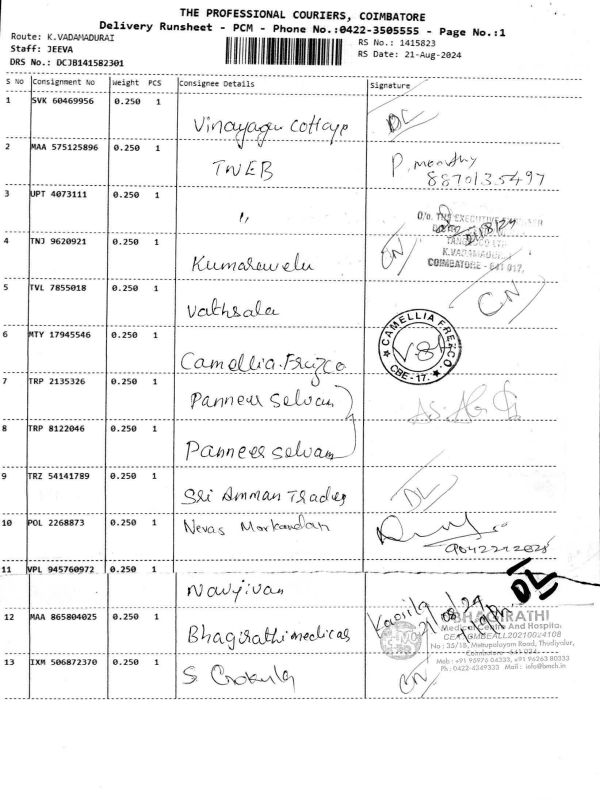 THE PROFESSIONAL COURIERS, COIMBATORE
Delivery Runsheet - PCM - Phone No.:0422-3505555 - Page No.:1
Route: K.VADAMADURAI
Staff: JEEVA
DRS No.: DCJB141582301
RS No.: 1415823
RS Date: 21-Aug-2024
S No Consignment No Weight PCS Consignee Details Signature
1 SVK 60469956 0.250 1 DL
Vinayaga Cottage
2 MAA 575125896 0.250 1 P.
TNEB 8870135497
3 UPT 4073111 0.250 1
"
4 TNJ 9620921 0.250 1 CN
K.VADAMADURAI
COIMBATORE - 641 017.
Kumaravelu
5 TVL 7855018 0.250 1 CN
Vathsala
6 MTY 17945546 0.250 1
CAMELLIA FREZCO
CBE - 17.
Camellia Frezco
7 TRP 2135326 0.250 1
Panneer Selvam
8 TRP 8122046 0.250 1
Panneer Selvam
9 TRZ 54141789 0.250 1 DL
Sri Amman Trades
10 POL 2268873 0.250 1
Nevas Markandan
11 VPL 945760972 0.250 1 DL
Navjivan
12 MAA 865804025 0.250 1
Bhagirathi medical
BHAGIRATHI
Medical Centre And Hospital
No : 35/18, Metrupalayam Road, Thudiyalur,
Coimbatore - 641 034
Mob : +91 95976 04333, +91 96263 80333
Ph : 0422-4349333 Mail : info@bmch.in
13 IXM 506872370 0.250 1 CN
S Gokula